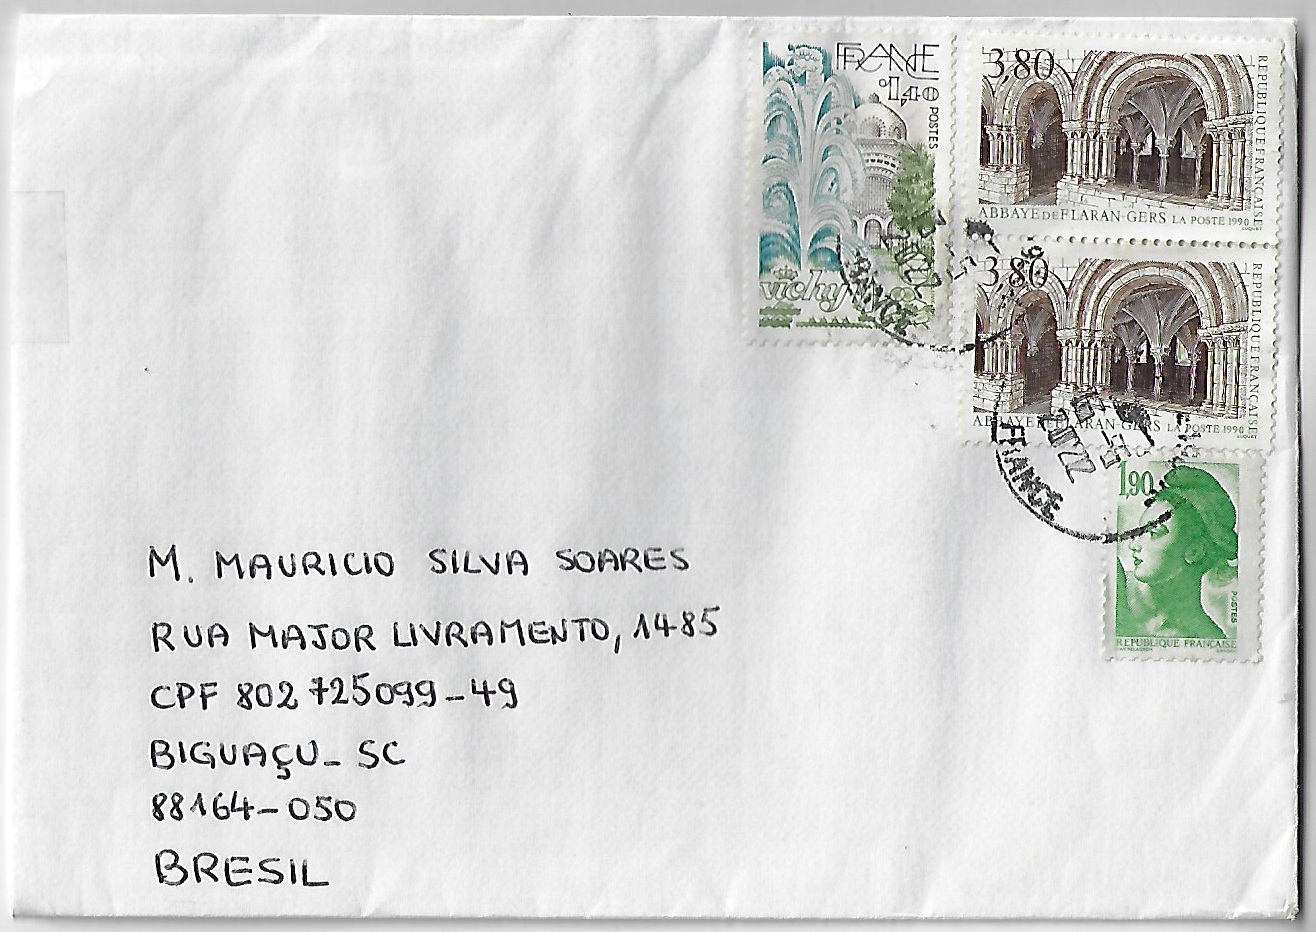 FRANCE
1,40
POSTES
vichy
3,80
REPUBLIQUE FRANÇAISE
ABBAYE DE FLARAN-GERS LA POSTE 1990
LUQUET
3,80
REPUBLIQUE FRANÇAISE
ABBAYE DE FLARAN-GERS LA POSTE 1990
LUQUET
FRANCE
2022
FRANCE
1,90
POSTES
REPUBLIQUE FRANÇAISE
M. MAURICIO SILVA SOARES
RUA MAJOR LIVRAMENTO, 1485
CPF 802 725099-49
BIGUAÇU_ SC
88164-050
BRESIL